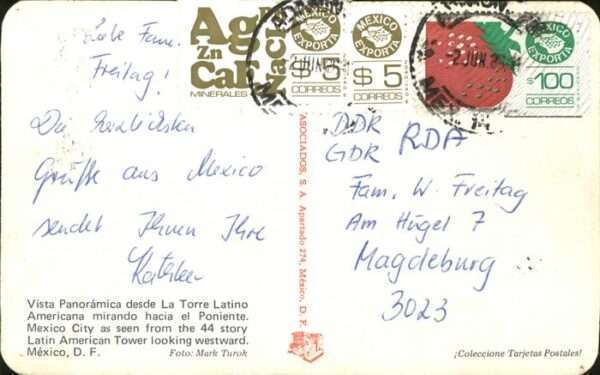 Liebe Fam.
Freitag!
Die herzlichsten
Grüße aus Mexico
sendet Ihnen Ihre
Vista Panorámica desde La Torre Latino
Americana mirando hacia el Poniente.
Mexico City as seen from the 44 story
Latin American Tower looking westward.
México, D. F.
Foto: Mark Turok
ASOCIADOS, S. A. Apartado 274, México, D. F.
Ag
Zn
CaF
MINERALES
MEXICO
EXPORTA
$5
CORREOS
MEXICO
EXPORTA
$5
CORREOS
MEXICO
EXPORTA
$100
CORREOS
2 JUN
2 JUN
DDR
GDR RDA
Fam. W. Freitag
Am Hügel 7
Magdeburg
3023
¡Coleccione Tarjetas Postales!